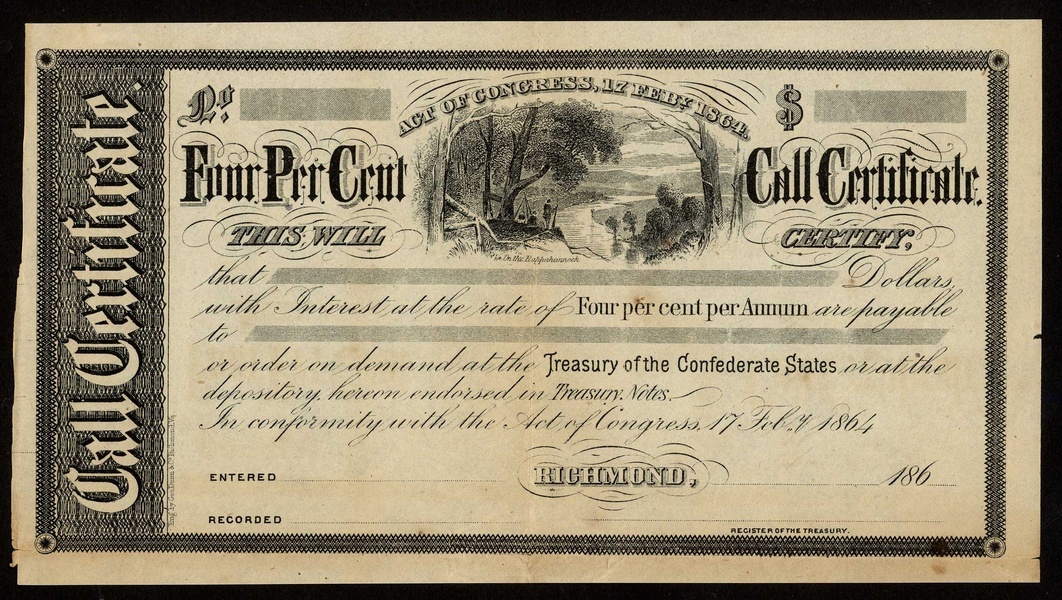 Call Certificate.
ACT OF CONGRESS, 17 FEBY 1864.
No. $
Four Per Cent Call Certificate.
THIS WILL CERTIFY,
On the Rappahannock
that Dollars,
with Interest at the rate of Four per cent per Annum are payable
to
or order on demand at the Treasury of the Confederate States or at the
depository, hereon endorsed in Treasury Notes.
In conformity with the Act of Congress, 17 Feb.y 1864
ENTERED RICHMOND, 186
RECORDED
REGISTER OF THE TREASURY.
Eng. by Geo. Dunn & Co. Richmond, Va.